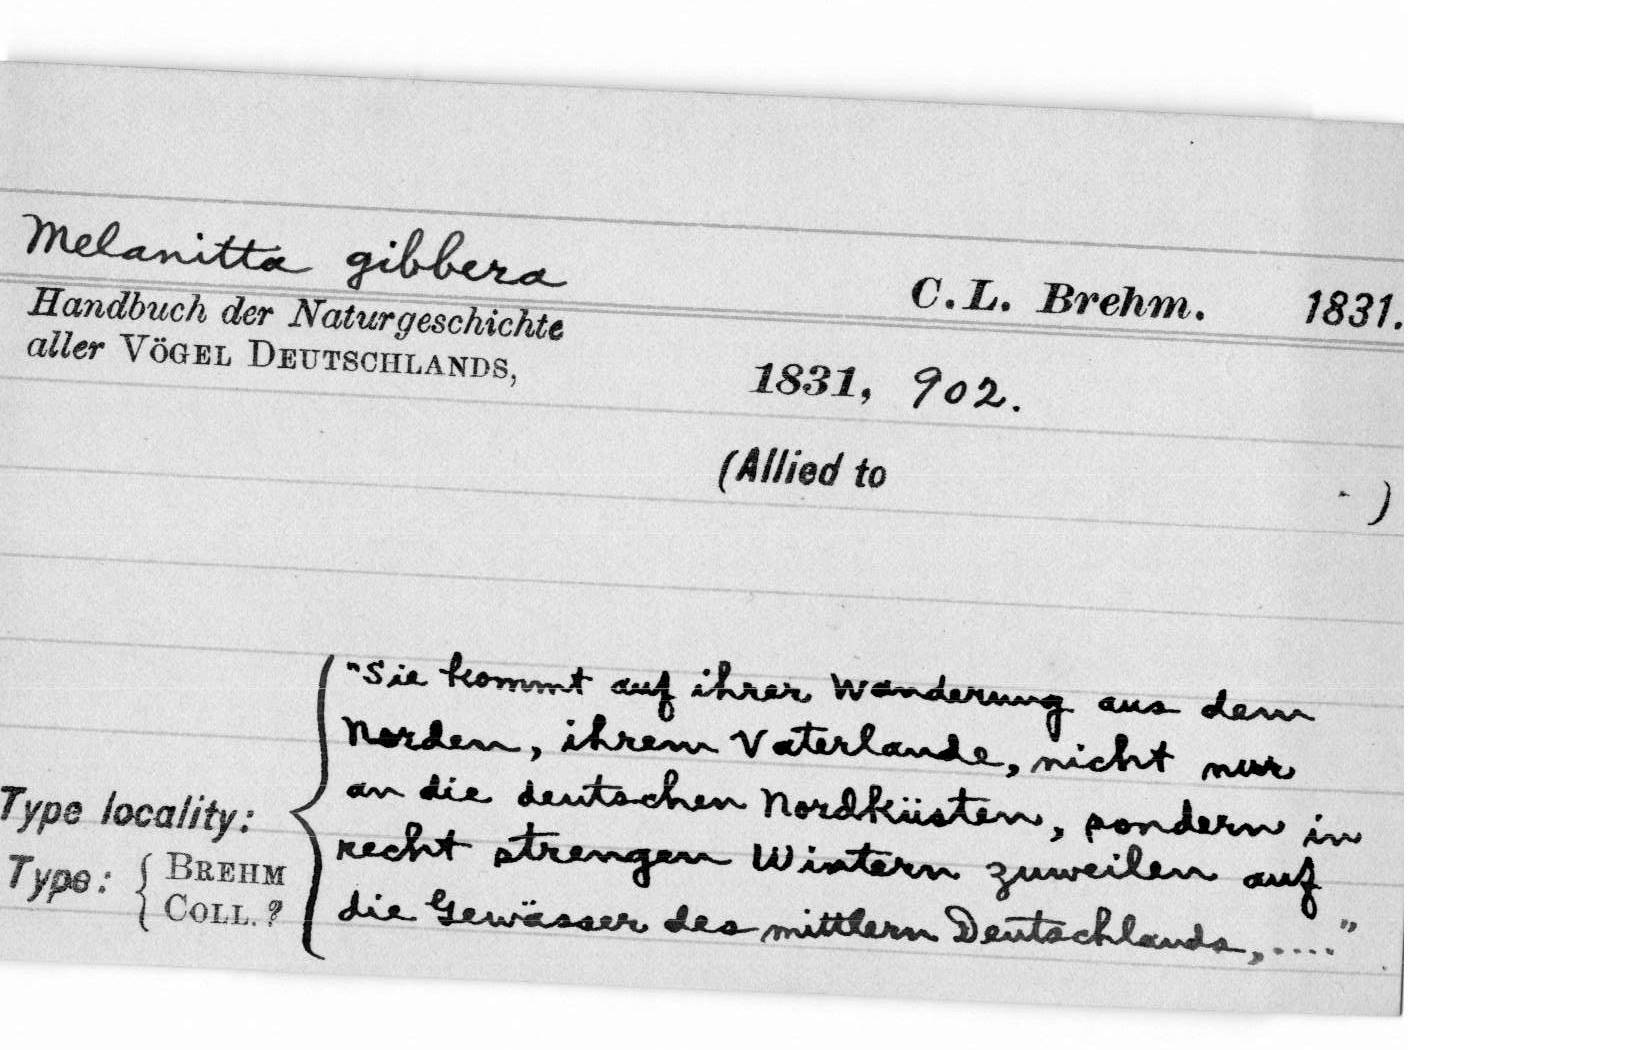 Melanitta gibbera C. L. Brehm. 1831.
Handbuch der Naturgeschichte
aller VÖGEL DEUTSCHLANDS,
1831, 902.
(Allied to - )
"Sie kommt auf ihrer Wanderung aus dem
Norden, ihrem Vaterlande, nicht nur
an die deutschen Nordküsten, sondern in
recht strengen Wintern zuweilen auf
die Gewässer des mittlern Deutschlands, ...."
Type locality:
Type: { BREHM
COLL. ?